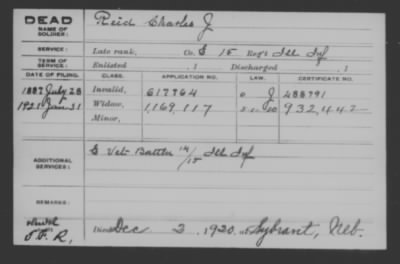 DEAD
NAME OF SOLDIER: Reid Charles J
SERVICE: Late rank, Co. G 15 Reg't Ill Inf
TERM OF SERVICE: Enlisted , 1 Discharged , 1
DATE OF FILING. CLASS. APPLICATION NO. LAW. CERTIFICATE NO.
1887 July 28 Invalid, 617764 J 488791
1921 Jan 31 Widow, 1,169,117 932,442
Minor,
ADDITIONAL SERVICES: G Vet Battln 14/15 Ill Inf
REMARKS:
J. F. R. Died Dec 2, 1920, at Sybrant, Neb.